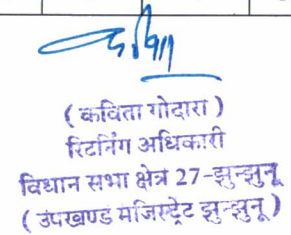 कविता
( कविता गोदारा )
रिटर्निंग अधिकारी
विधान सभा क्षेत्र 27-झुन्झुनू
( उपखण्ड मजिस्ट्रेट झुन्झुनू )